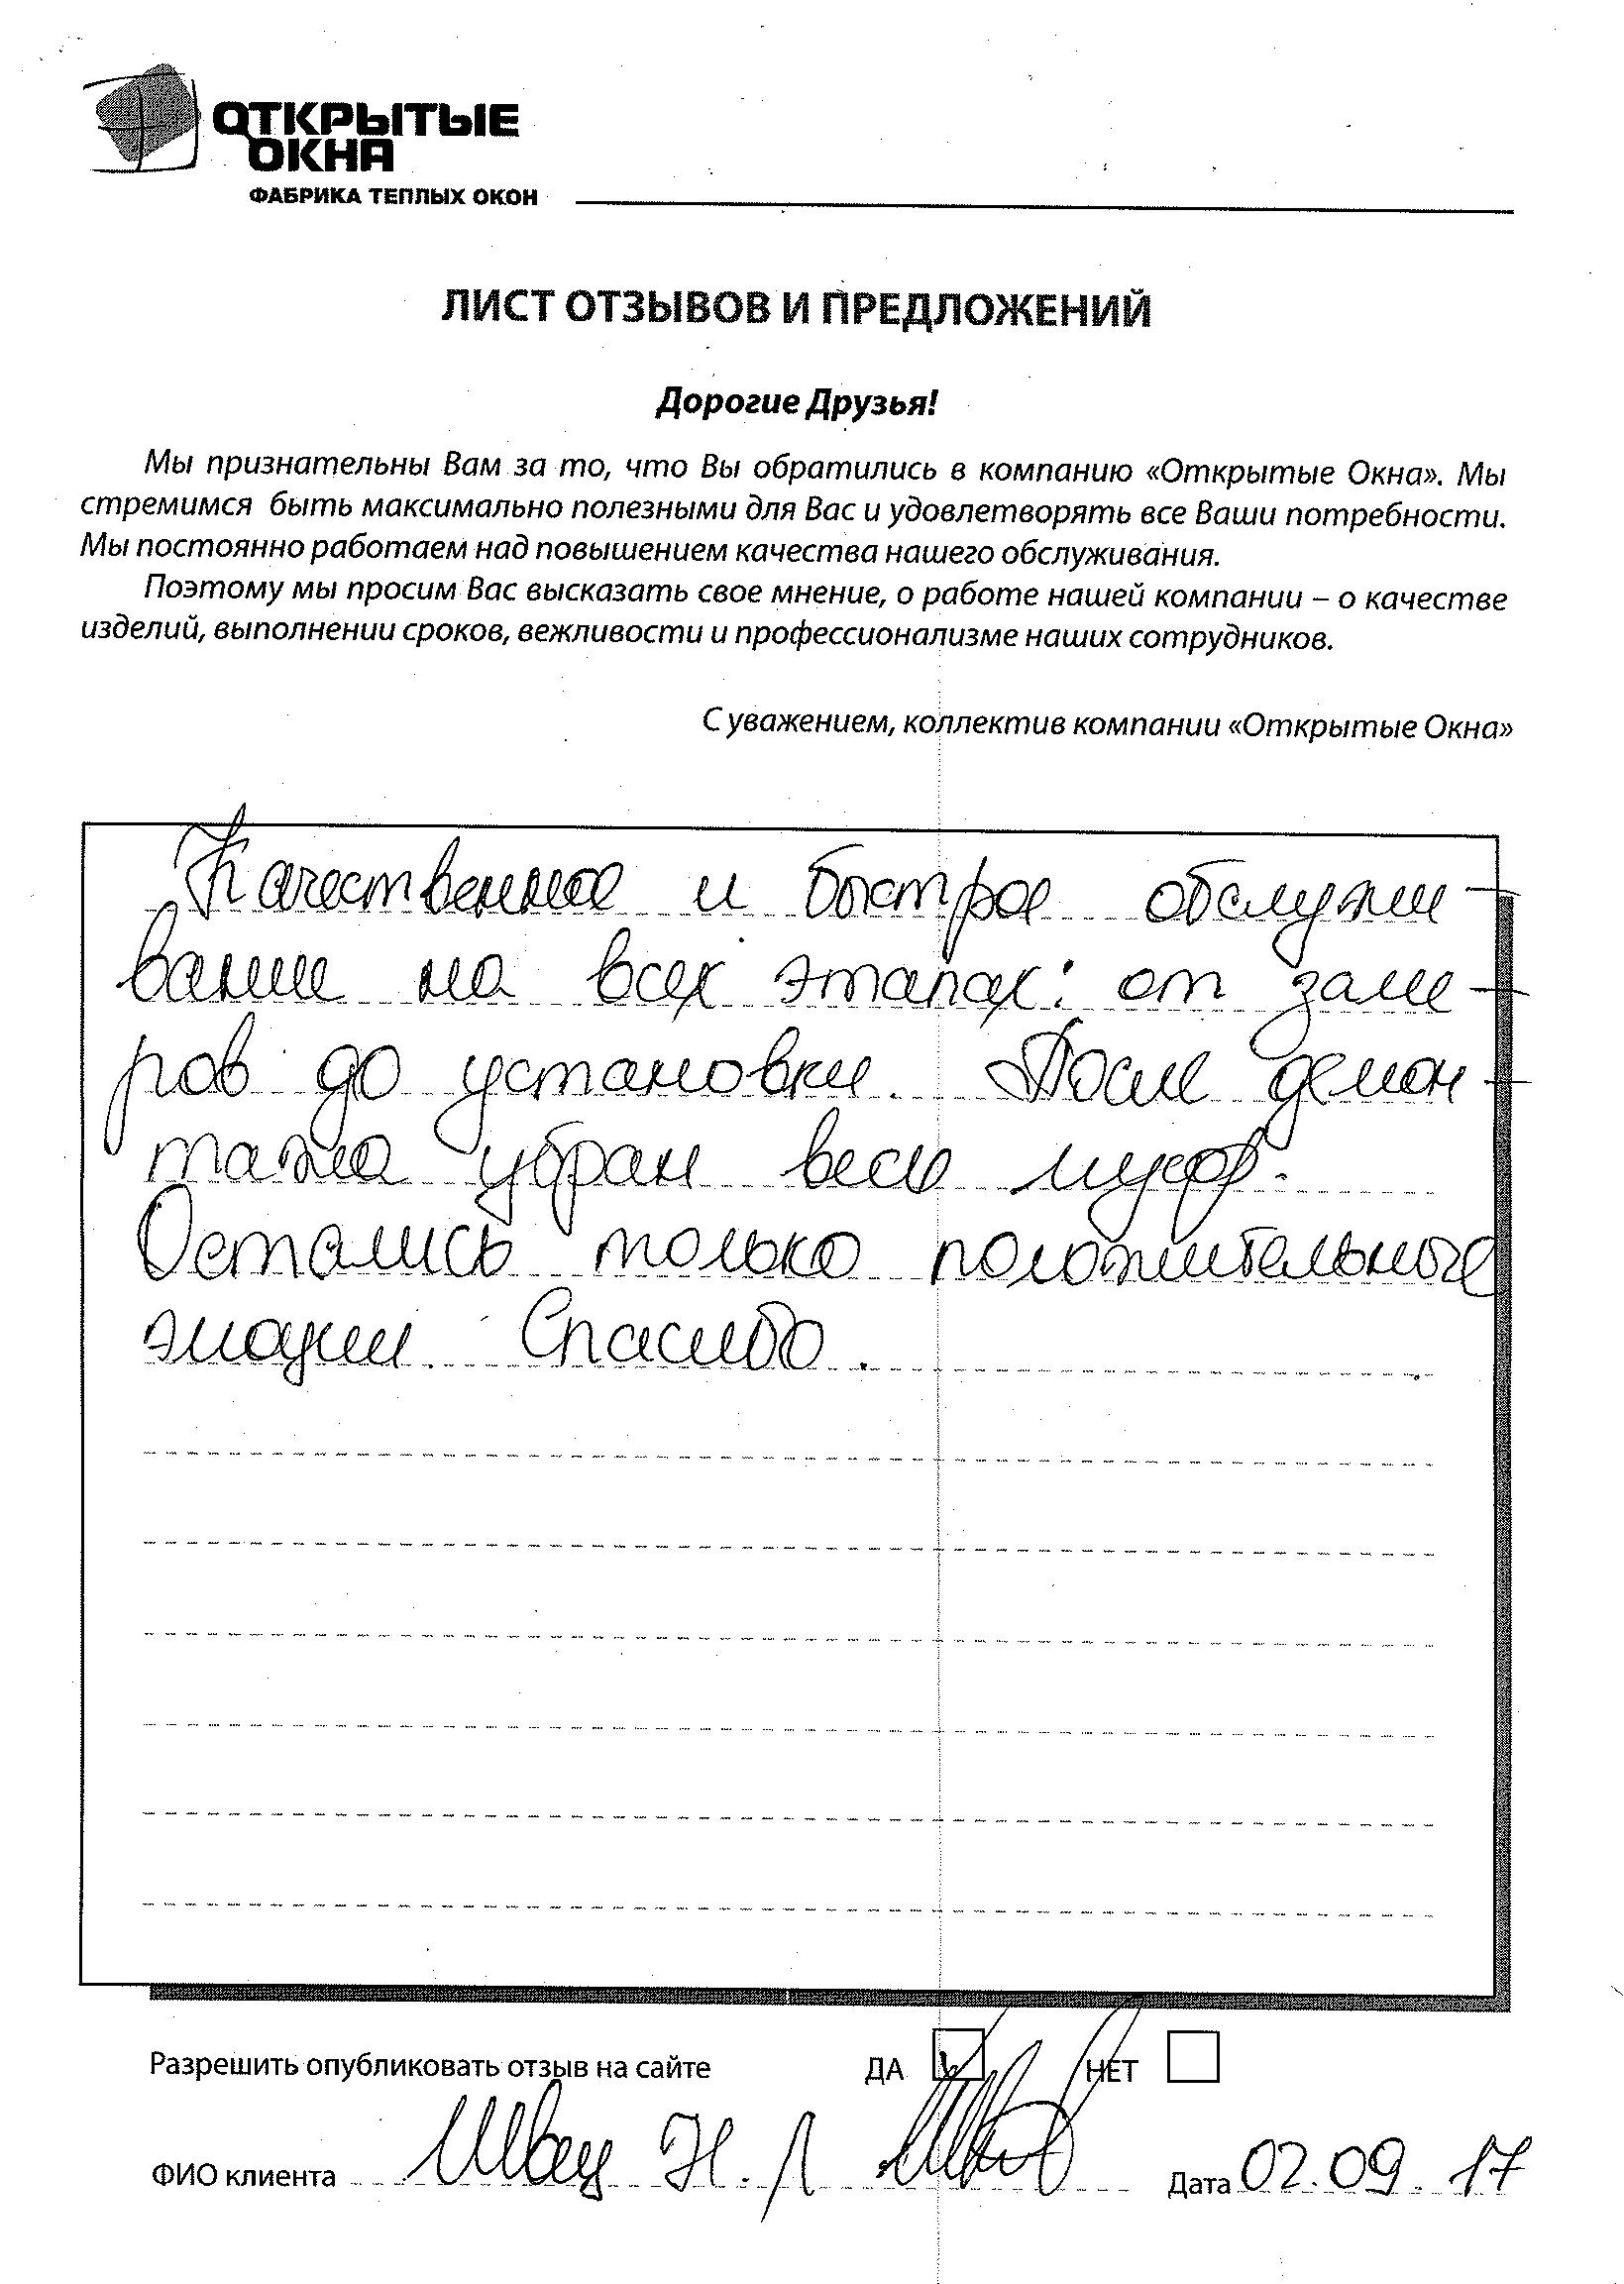 ОТКРЫТЫЕ
ОКНА
ФАБРИКА ТЕПЛЫХ ОКОН
ЛИСТ ОТЗЫВОВ И ПРЕДЛОЖЕНИЙ
Дорогие Друзья!
Мы признательны Вам за то, что Вы обратились в компанию «Открытые Окна». Мы
стремимся быть максимально полезными для Вас и удовлетворять все Ваши потребности.
Мы постоянно работаем над повышением качества нашего обслуживания.
Поэтому мы просим Вас высказать свое мнение, о работе нашей компании – о качестве
изделий, выполнении сроков, вежливости и профессионализме наших сотрудников.
С уважением, коллектив компании «Открытые Окна»
Качественное и быстрое обслужи-
вание на всех этапах: от заме-
ров до установки. После демон-
тажа убран весь мусор.
Остались только положительные
эмоции. Спасибо.
Разрешить опубликовать отзыв на сайте ДА НЕТ
ФИО клиента Швец Н. Л Дата 02.09.17